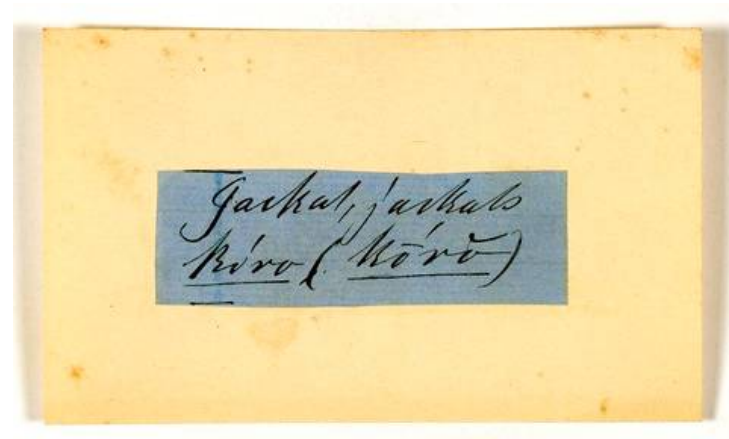 Jackal, jackals
Kóro (Kṓrŏ)